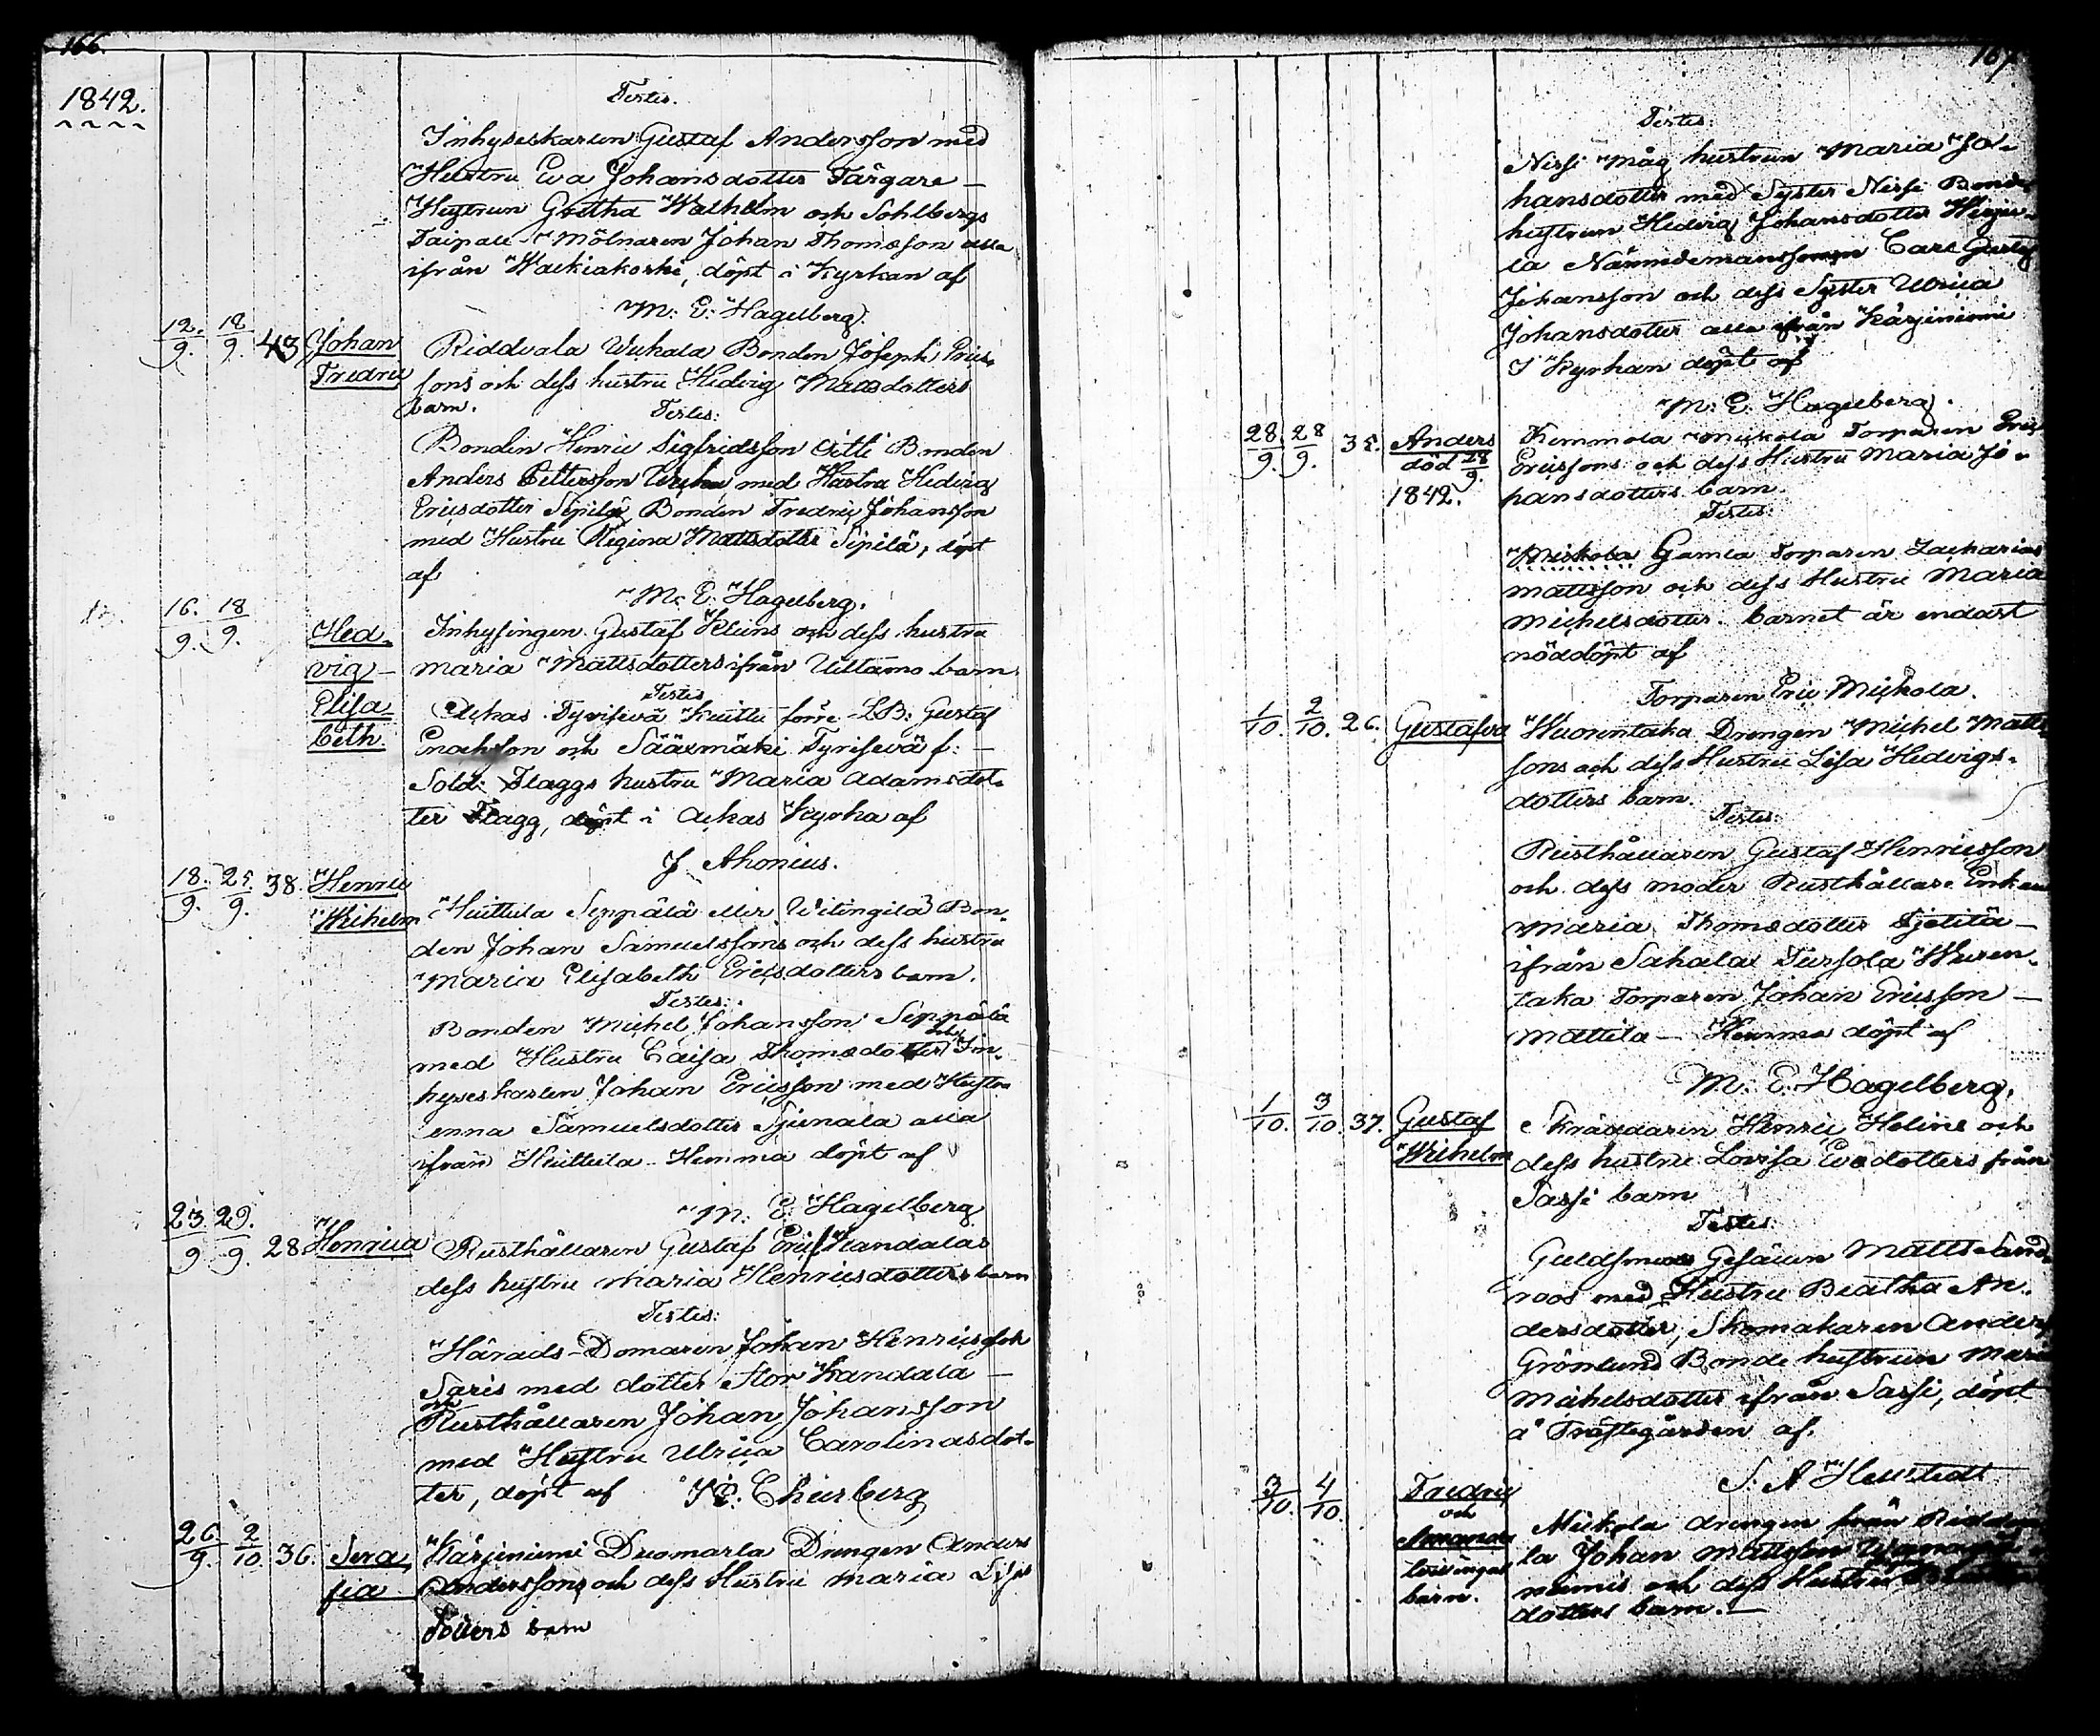 166.
1842.
Testes.
Inhyseskarlen Gustaf Andersson med
Hustru Eva Johansdotter Färgare-
Hustrun Gretha Walhelm och Sohlbergs
Taipale Mölnaren Johan Thomsson alla
ifrån Walkiakoski, döpt i Kyrkan af
M. E. Hagelberg.
12./9. 18/9. 43 Johan Riddvala Uukala Bonden Joseph Erics
Fredric sons och dess hustru Hedvig Mattsdotters
barn. Testes:
Bonden Henric Sigfridsson Bonden
Anders Pettersson med Hustru Hedvig
Ericsdotter Sipilä, Bonden Fredric Johansson
med Hustru Regina Mattsdotter Sipilä, döpt
af
M. E. Hagelberg.
16./9. 18/9. Hed- Inhysingen Gustaf Kleins och dess hustru
vig- Maria Mattsdotters ifrån Uittamo barn.
Testes
Elisa- Ackas Tyrisevä Kuittu före LB: Gustaf
beth. Enachsson och Sääxmäki Tyrisevä f: -
Sold: Flaggs hustru Maria Adamsdot-
ter Flagg, döpt i Ackas Kyrka af
J. Ahonius.
18./9. 25./9. 38. Henric
Wilhelm Huittula Seppälä eller Witingilä Bon-
den Johan Samuelssons och dess hustru
Maria Elisabeth Ericsdotters barn.
Testes:
Bonden Michel Johansson Seppälä
med Hustru Caisa Thomsdotter och In-
hyseskarlen Johan Ericsson med Hustru
enna Samuelsdotter Sjunala alla
ifrån Huittula. Hemma döpt af
M. E. Hagelberg
23./9. 29./9. 28 Henrica Rusthållaren Gustaf Erics Kandalas
dess hustru Maria Henricsdotters barn
Testes:
Härads-Domaren Johan Henricsson
Saris med dotter Stor Kandala -
och
Rusthållaren Johan Johansson
med Hustru Ulrica Carolinasdot-
ter, döpt af
26/9. 2/10. 36. Sera Kärjeniemi Duomarla Drengen Anders
fia Anderssons och dess Hustru Maria Lisä
dotters barn
167
Testes:
Nissi Måg hustrun Maria Jo-
hansdotter med Syster Nissi Bonde
hustrun Hedvig Johansdotter
la Nämndemanssonen Carl Gustaf
Johansson och dess Syster Ulrica
Johansdotter alla ifrån Kärjeniemi
I Kyrkan döpt af
M. E. Hagelberg.
28./9. 28/9. 35. Anders Kemmola Mickola Torparen Eric
död 28/9. Ericssons och dess Hustru Maria Jo-
1842. hansdotters barn.
Testes:
Mickola Gamla Torparen Zacharias
Mattsson och dess Hustru Maria
Michelsdotter. barnet är endast
nöddöpt af
Torparen Eric Mickola.
1/10. 2/10. 26. Gustafva Wuorentaka Drengen Michel Matts
sons och dess Hustru Lisa Hedvigs-
dotters barn.
Testes:
Rusthållaren Gustaf Henricsson
och dess moder Rusthållare Enkan
Maria Thomsdotter Pjetilä-
ifrån Sahala Tursola Wuren-
taka Torparen Johan Ericsson -
Mattila - Hemma döpt af
M. E. Hagelberg.
1/10. 3/10. 37. Gustaf Skräddaren Henric Helins och
Wilhelm dess hustru Lovisa Evadotters från
Sassi barn
Testes:
Guldsmeds Gesällen Matts Lind-
roos med Hustru Beatha An-
dersdotter, Skomakaren Anders
Grönlund Bonde hustrun Maria
Michelsdotter ifrån Sassi, döpt
å Prestegården af.
S. A. Hellstedt
3/10. 4/10. Fredric Mickola drengen från Riddva
och
Amanda la Johan Mattsson
tvillingar niemis och dess Hustru
barn. dotters barn. -